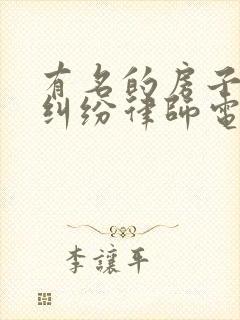 有名的房子
纠纷律師電
李讓平